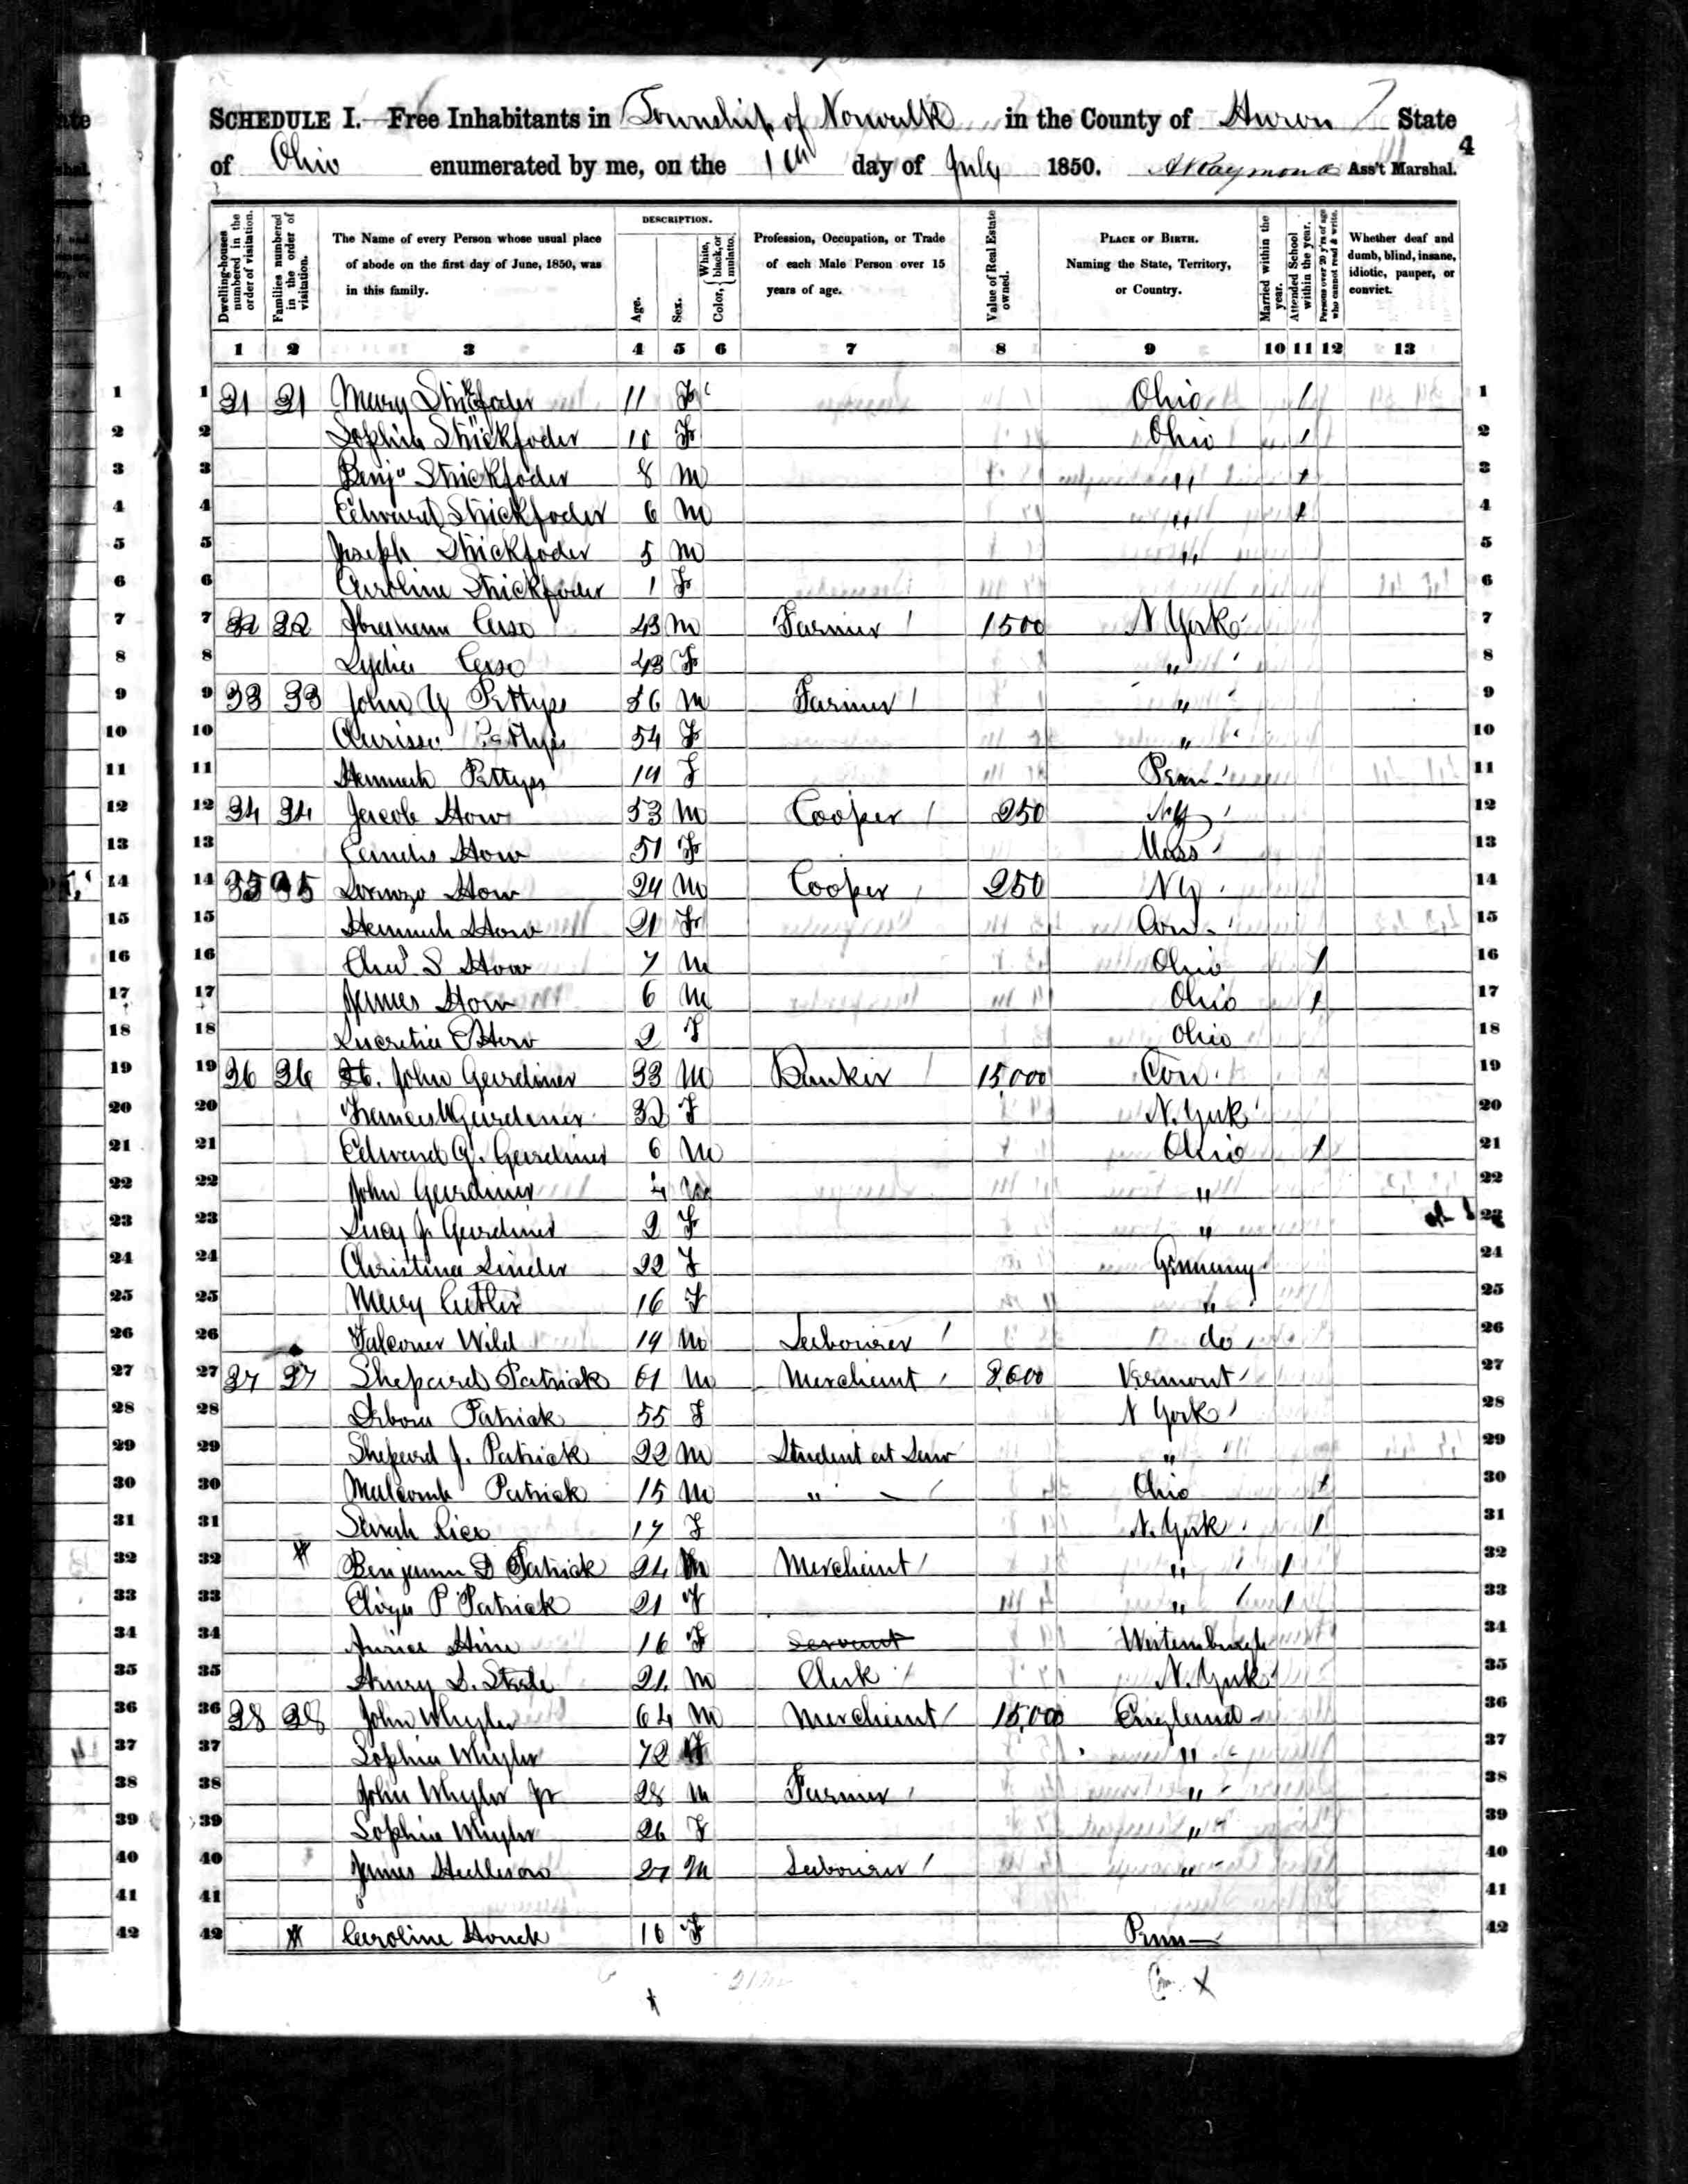 4
SCHEDULE I. Free Inhabitants in Township of Norwalk in the County of Huron State
of Ohio enumerated by me, on the 1st day of July 1850. A Raymond Ass't Marshal.
Dwelling-houses numbered in the order of visitation.
Families numbered in the order of visitation.
The Name of every Person whose usual place of abode on the first day of June, 1850, was in this family.
DESCRIPTION.
Age.
Sex.
Color, White, black, or mulatto.
Profession, Occupation, or Trade of each Male Person over 15 years of age.
Value of Real Estate owned.
PLACE OF BIRTH. Naming the State, Territory, or Country.
Married within the year.
Attended School within the year.
Persons over 20 y'rs of age who cannot read & write.
Whether deaf and dumb, blind, insane, idiotic, pauper, or convict.
1 2 3 4 5 6 7 8 9 10 11 12 13
1 31 31 Mary Strickfoder 11 F Ohio 1 1
2 Sophia Strickfoder 10 F Ohio 1 2
3 Benjn Strickfoder 8 M " 1 3
4 Edward Strickfoder 6 M " 1 4
5 Joseph Strickfoder 5 M " 5
6 Caroline Strickfoder 1 F 6
7 32 32 Abraham 43 M Farmer 1500 N York 7
8 Lydia 43 F " 8
9 33 33 John Y Pettys 56 M Farmer " 9
10 Clarissa Pettys 54 F " 10
11 Hannah Pettys 14 F Penn 11
12 34 34 Jacob How 53 M Cooper 250 NY 12
13 How 51 F Mass 13
14 35 35 Lorenzo How 24 M Cooper 250 NY 14
15 Hannah How 21 F Con. 15
16 Chas S How 7 M Ohio 1 16
17 James How 6 M Ohio 1 17
18 Lucretia E How 2 F Ohio 18
19 36 36 St. John Gardiner 33 M Banker 15,000 Con. 19
20 Frances M Gardiner 32 F N. York 20
21 Edward G. Gardiner 6 M Ohio 1 21
22 John Gardiner 4 M " 22
23 Lucy J Gardiner 2 F " 23
24 Christina Linder 22 F Germany 24
25 Mary Cutler 16 F " 25
26 Falconer Wild 19 M Labourer do 26
27 37 37 Shepard Patrick 61 M Merchant 8,600 Vermont 27
28 Patrick 55 F N York 28
29 Shepard J. Patrick 22 M Student at Law " 29
30 Malcomb Patrick 15 M " Ohio 1 30
31 Sarah Rice 17 F N. York 1 31
32 Benjamin D Patrick 24 M Merchant " 1 32
33 Eliza P Patrick 21 F " 1 33
34 16 F Servant Wirtemburgh 34
35 Henry S. Steele 21 M Clerk N. York 35
36 38 38 John Whyler 64 M Merchant 15,000 England 36
37 Sophia Whyler 72 F " 37
38 John Whyler Jr 28 M Farmer " 38
39 Sophia Whyler 26 F " 39
40 James 27 M Labourer " 40
41 41
42 Caroline Houck 16 F Penn 42